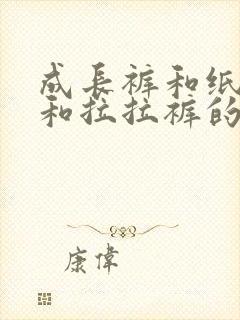 成長裤和纸
和拉拉裤的
康偉